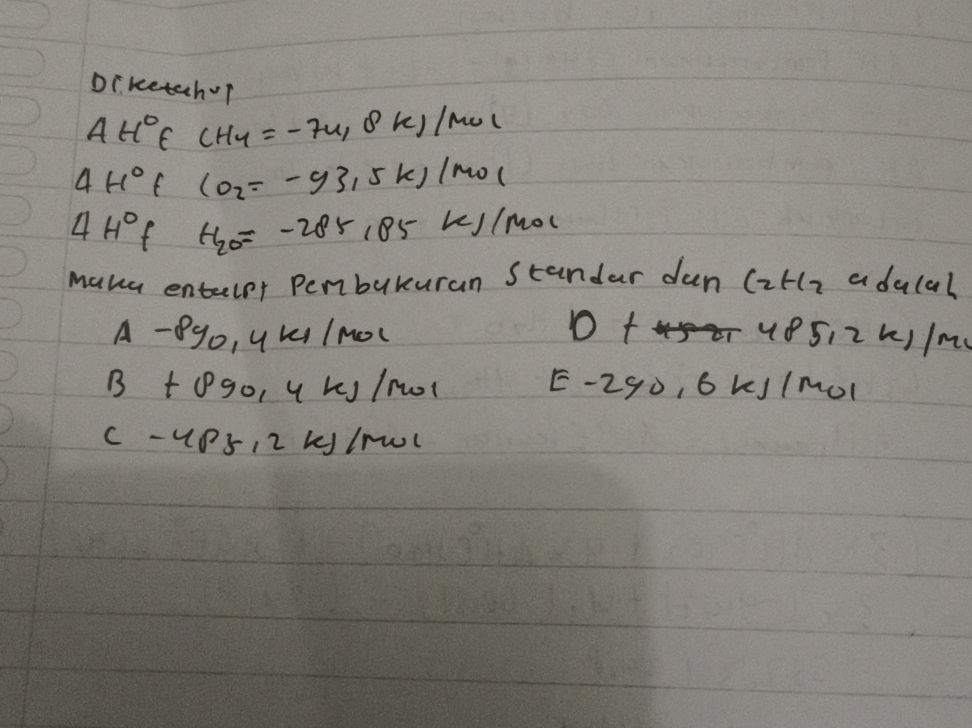 Diketahui
ΔH°f CH4 = -74,8 kJ/mol
ΔH°f CO2 = -93,5 kJ/mol
ΔH°f H2O = -285,85 kJ/mol
maka entalpi Pembakaran Standar dan C2H2 adalah
A -890,4 kJ/mol D + 485,2 kJ/mo
B + 890,4 kJ/mol E -290,6 kJ/mol
C -485,2 kJ/mol